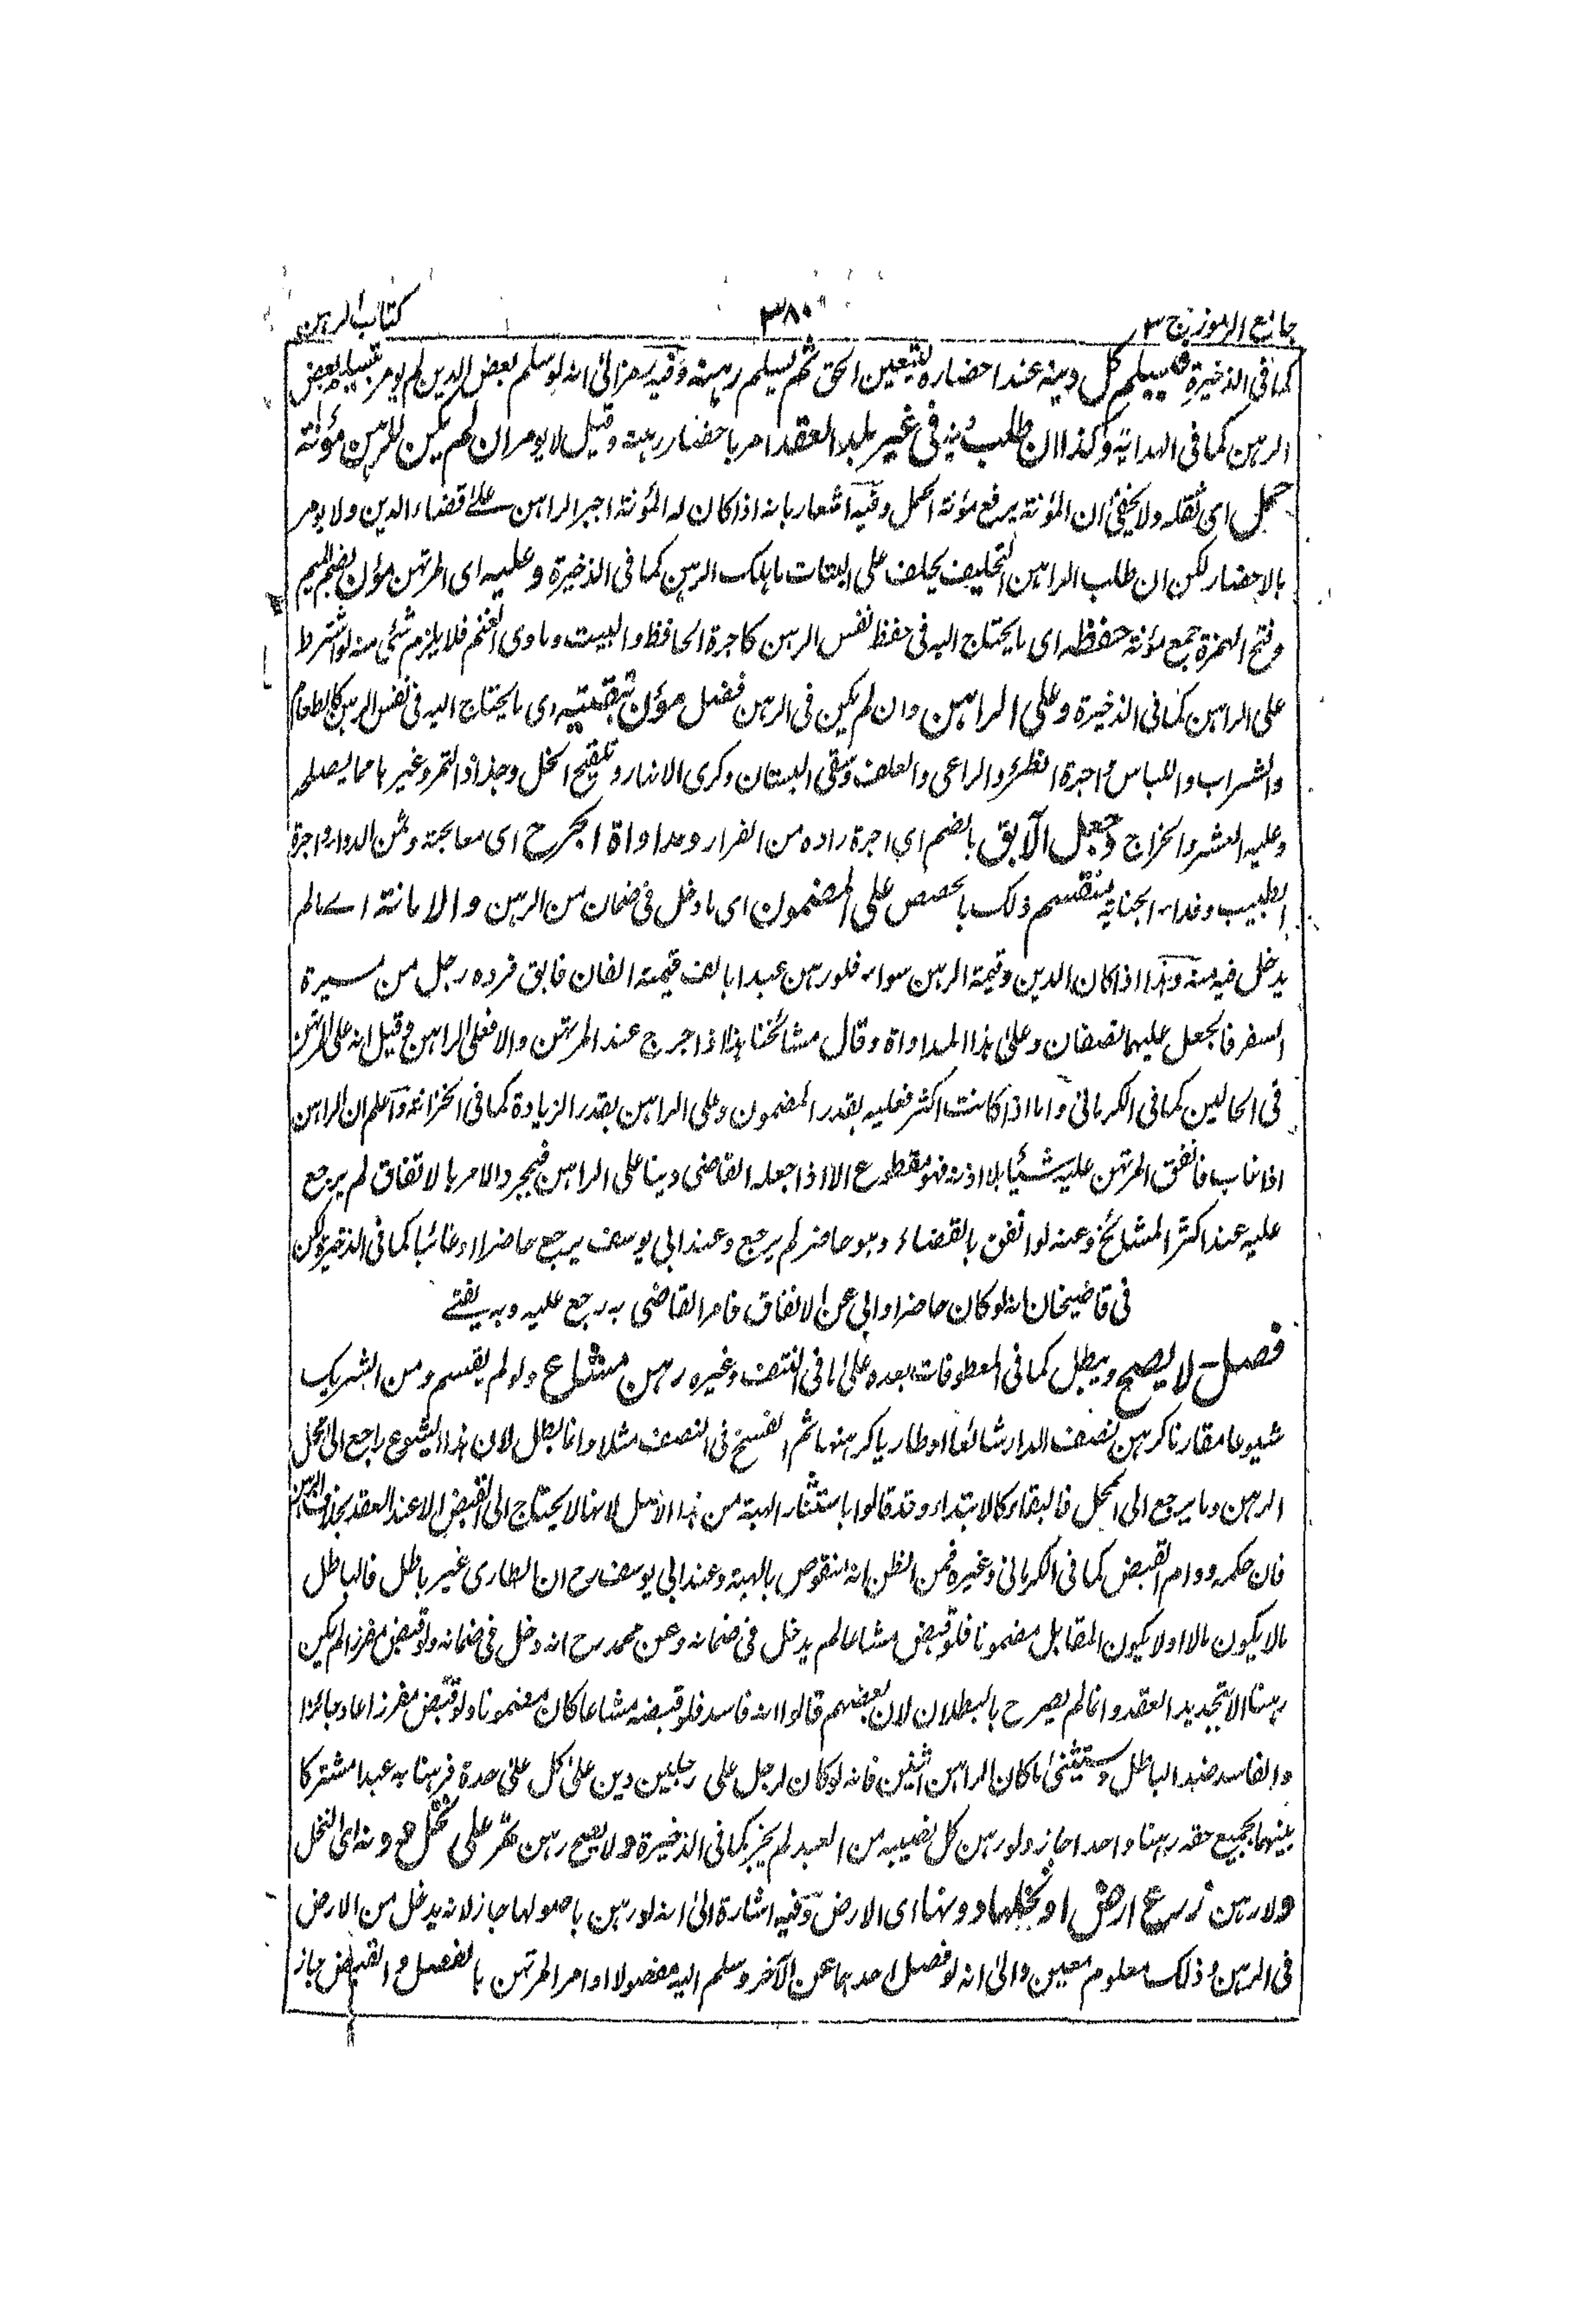 جامع الرموز ج ٣
٣٨٠
كتاب الرهن
كما فى الذخيرة ويسلم كل دينه عند احضاره لتعيين الحق ثم يسلم رهنه وفيه رمز الى انه لو سلم بعض الدين لم يومر بتسليم بعض
الرهن كما فى الهداية وكذا ان طلب دينه فى غير بلد العقد امر باحضار رهنه وقيل لا يومر ان لم يكن للرهن مؤنة
حمل اى ثقله ولا يخفى ان المؤنة يرفع مؤنة الحمل وفيه اشعار بانه اذا كان له المؤنة اجبر الراهن على قضاء الدين ولا يومر
بالاحضار لكن ان طلب الراهن التحليف يحلف على البتات ما هلك الرهن كما فى الذخيرة وعليه اى المرتهن مؤن بضم الميم
وفتح الهمزة جمع مؤنة حفظه اى ما يحتاج اليه فى حفظ نفس الرهن كاجرة الحافظ والبيت وماوى الغنم فلا يلزم شئ منه لو اشترط
على الراهن كما فى الذخيرة وعلى الراهن وان لم يكن فى الرهن فضل مؤن تبقيته اى ما يحتاج اليه فى نفس الرهن كالطعام
والشراب واللباس واجرة الظئر والراعى والعلف وسقى البستان وكرى الانهار وتلقيح النخل وجذاذ التمر وغيرها مما يصلحه
وعليه العشر والخراج وجعل الآبق بالضم اى اجرة راده من الفرار ومداواة الجرح اى معالجته وثمن الدواء واجرة
الطبيب وفداء الجناية ينقسم ذلك بالحصص على المضمون اى ما دخل فى ضمان من الرهن والامانة اے مالم
يدخل فيه منه وهذا اذا كان الدين وقيمة الرهن سواء فلو رهن عبدا بالف قيمته الفان فابق فرده رجل من مسيرة
السفر فالجعل عليهما نصفان وعلى هذا المداواة وقال مشائخنا هذا اذا جرح عند المرتهن والا فعلى الراهن وقيل انه على المرتهن
فى الحالين كما فى الكرمانى واما اذا كانت اكثر فعليه بقدر المضمون وعلى الراهن بقدر الزيادة كما فى الخزانة واعلم ان الراهن
اذا غاب فانفق المرتهن عليه شيئا بلا اذنه فهو مقطوع الا اذا جعله القاضى دينا على الراهن فبمجرد الامر بالاتفاق لم يرجع
عليه عند اكثر المشائخ وعنه لو انفق بالقضاء وهو حاضر لم يرجع وعند ابى يوسف يرجع حاضرا او غائبا كما فى الذخيرة لكن
فى قاضيخان انه لو كان حاضرا وابى عن الانفاق فامر القاضى به رجع عليه وبه يفتے
فصل - لا يصح ويبطل كما فى المعطوفات بعده على ما فى النتف وغيره رهن مشاع ولو لم يقسم ومن الشريك
شيوعا مقارنا كرهن نصف الدار شائعا او طاريا كرهنها ثم الفسخ فى النصف مثلا وانما بطل لان هذا الشيوع راجع الى محل
الرهن وما يرجع الى المحل فالبقاء كالابتداء وقد قالوا باستثناء الهبة من هذا الاصل لانها لا يحتاج الى القبض الا عند العقد بخلاف الرهن
فان حكمه دوام القبض كما فى الكرمانى وغيره فمن الظن انه منقوض بالهبة وعند ابى يوسف رح ان الطارى غير باطل فالباطل
مالا يكون مالا او لا يكون المقابل مضمونا فلو قبض مشاعا لم يدخل فى ضمانه وعن محمد رح انه دخل فى ضمانه ولو قبض مفرزا لم يكن
رهنا الا بتجديد العقد وانما لم يصرح بالبطلان لان بعضهم قالوا انه فاسد فلو قبضه مشاعا كان مضمونا ولو قبض مفرزا عاد جائزا
والفاسد ضد الباطل ويستثنى ما كان الراهن اثنين فانه لو كان لرجل على رجلين دين على كل على حدة فرهنا به عبدا مشتركا
بينهما بجميع حقه رهنا واحدا جاز ولو رهن كل نصيبه من العبد لم يجز كما فى الذخيرة ولا يصح رهن ثمر على نخل دونه اى النخل
ولا رهن زرع ارض او نخلها دونها اى الارض وفيه اشارة الى انه لو رهن باصولها جاز لانه يدخل من الارض
فى الرهن وذلك معلوم معين والى انه لو فصل احدهما عن الآخر وسلم اليه مفصولا او امر المرتهن بالفصل والقبض جاز